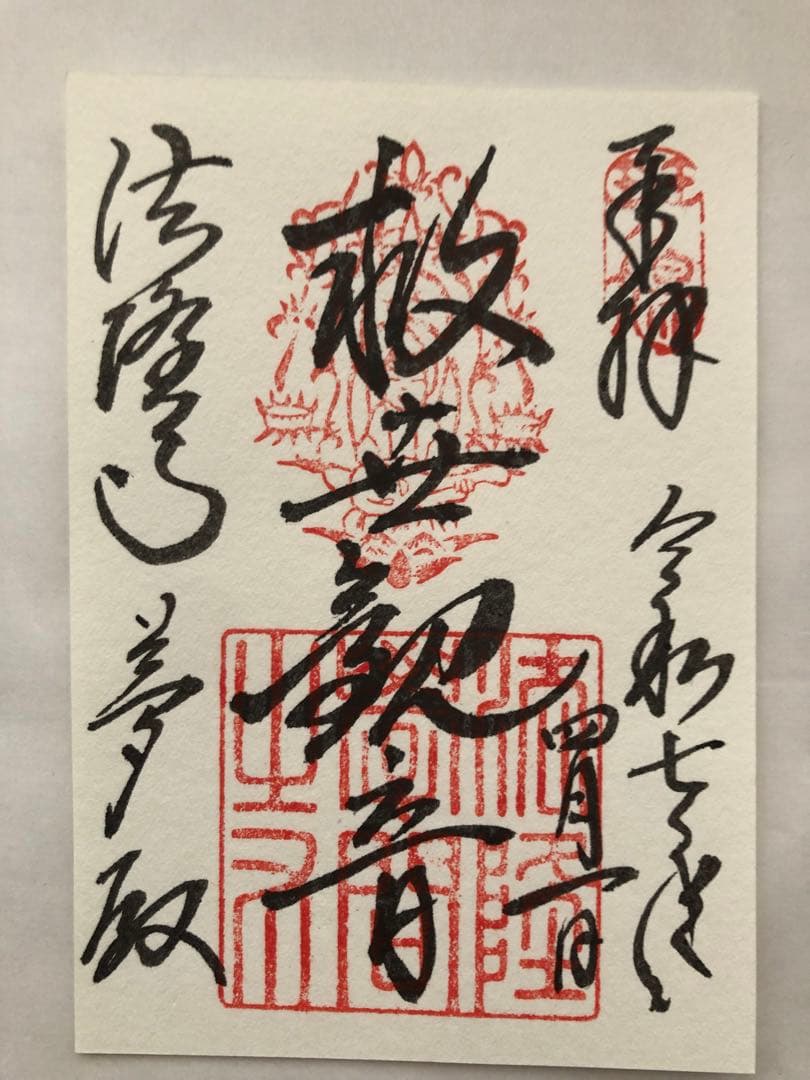 奉拝
令和七年
四月一日
救世観音
法隆寺
夢殿